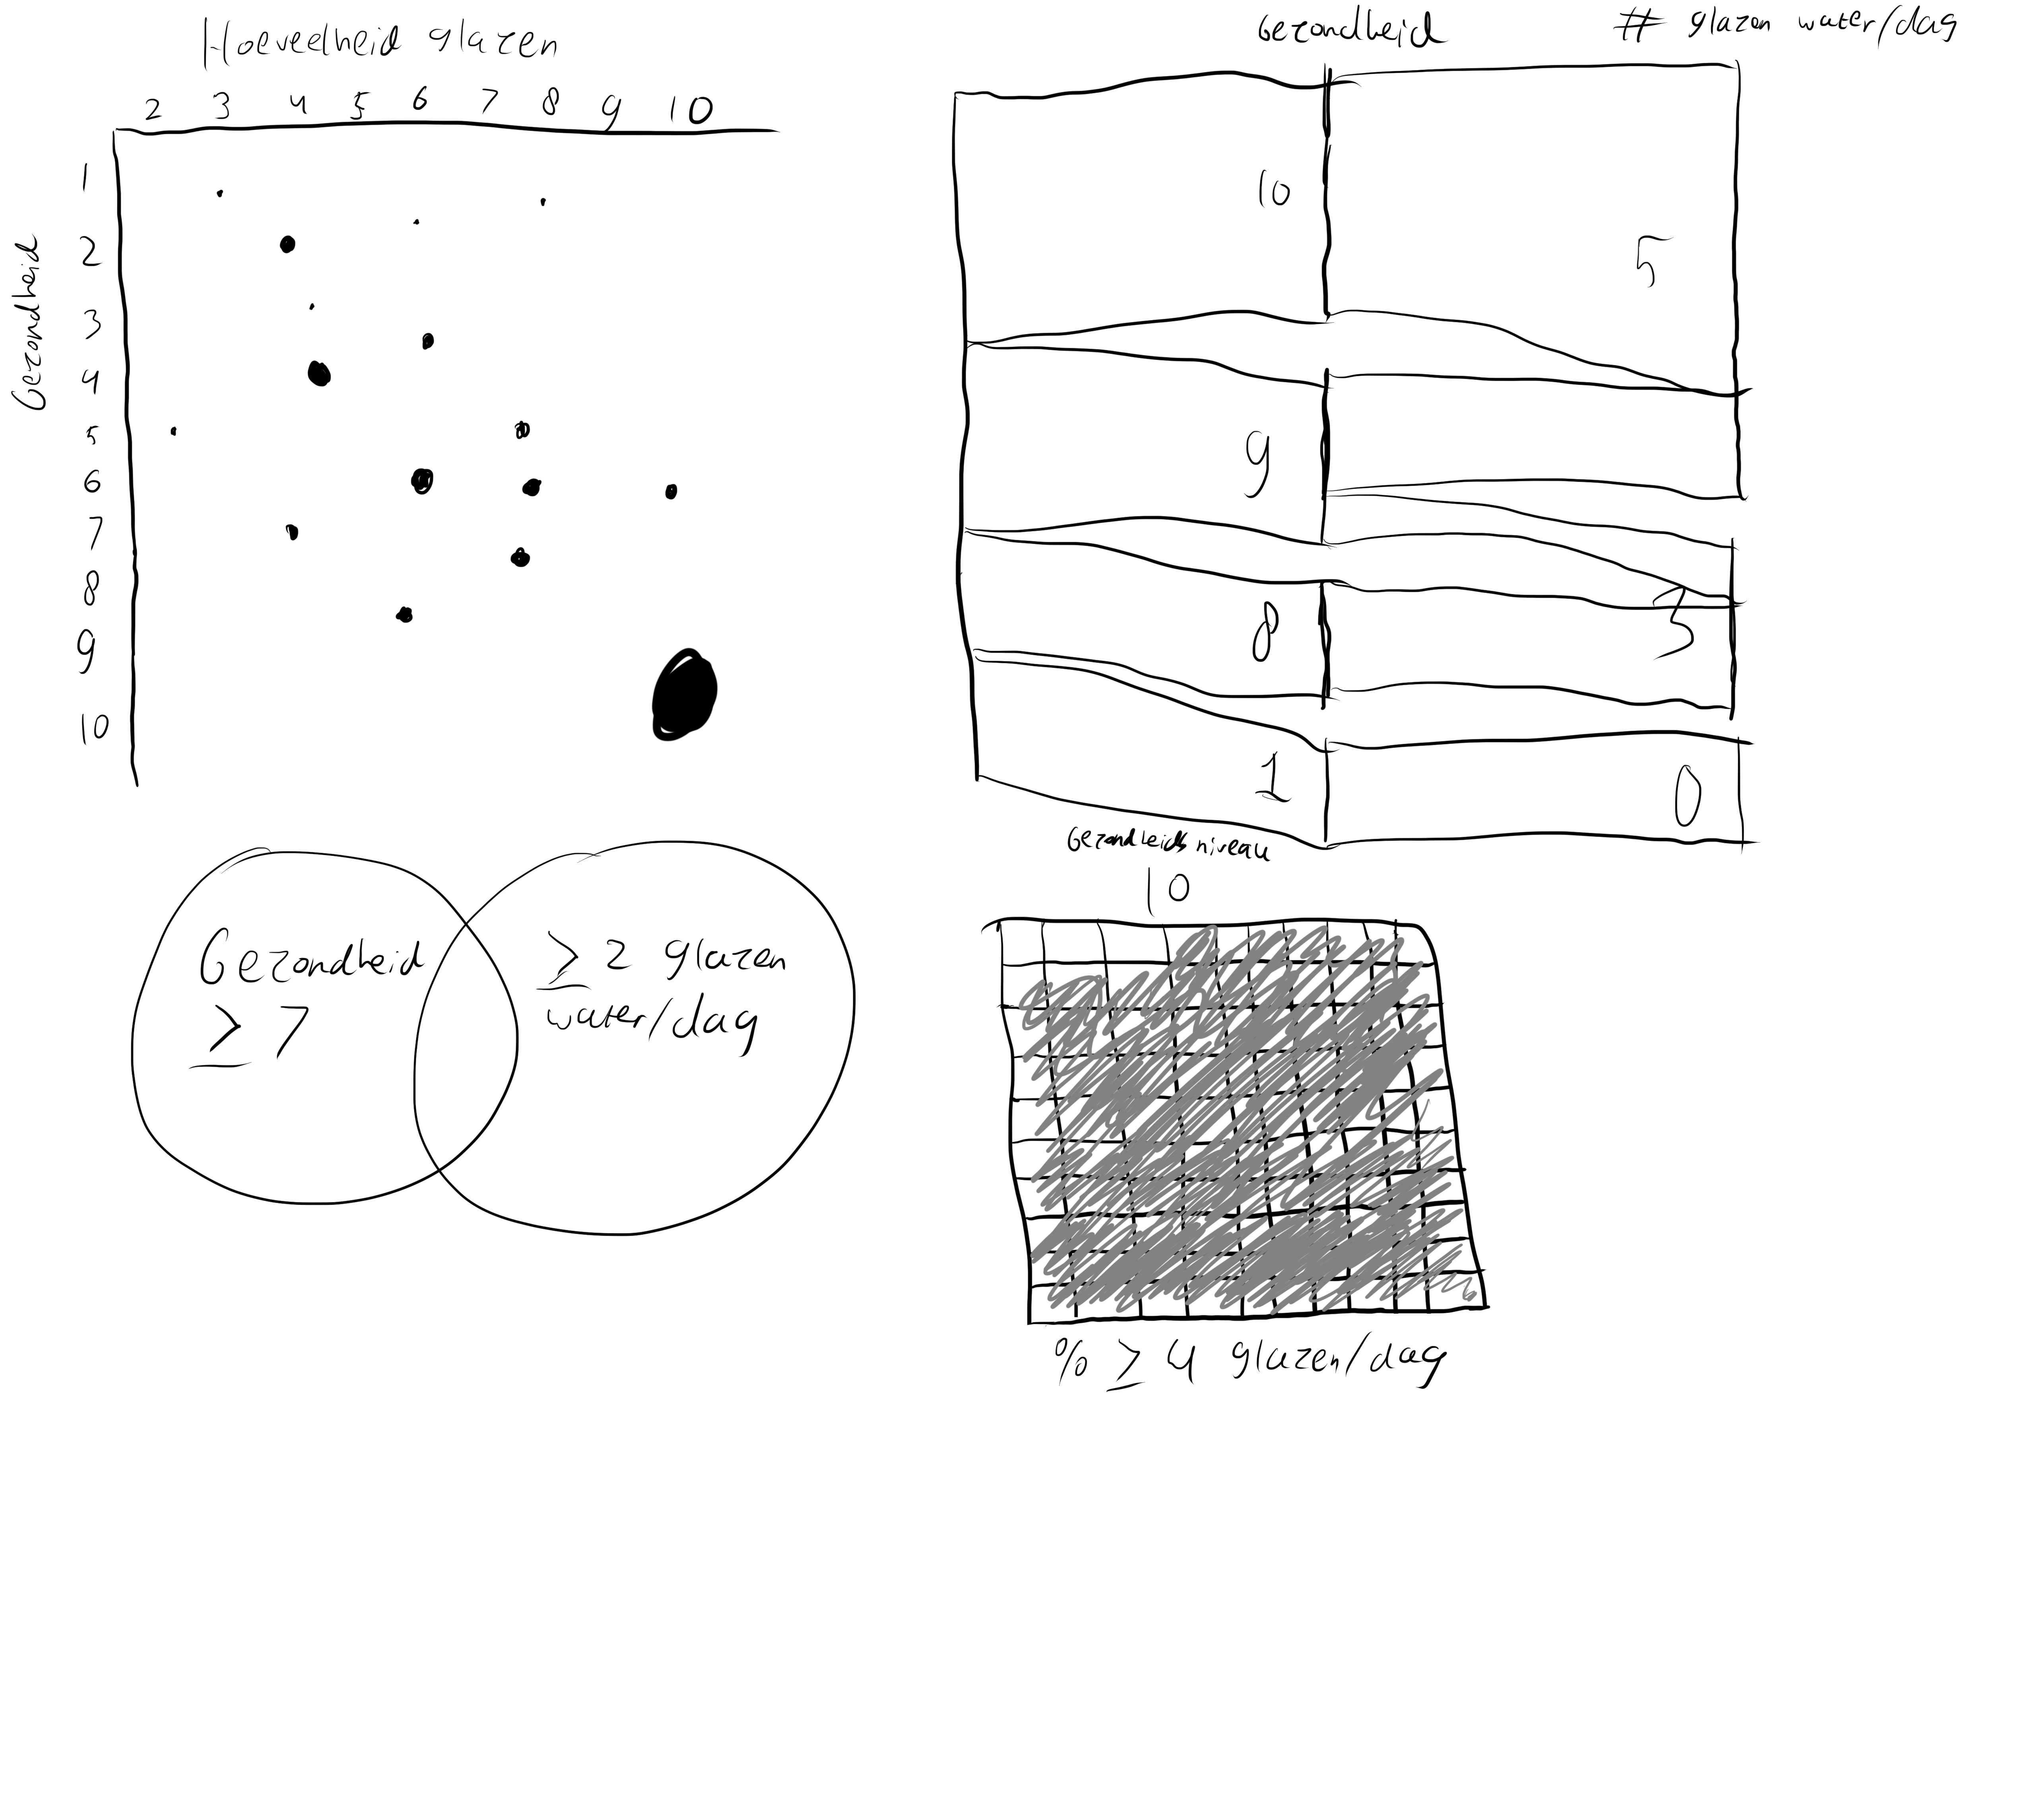 Hoeveelheid glazen
2 3 4 5 6 7 8 9 10
Gezondheid
1
2
3
4
5
6
7
8
9
10
Gezondheid # glazen water/dag
10
5
9
8
3
1
0
Gezondheid
≥ 7
≥ 2 glazen
water/dag
Gezondheids niveau
10
% ≥ 4 glazen/dag